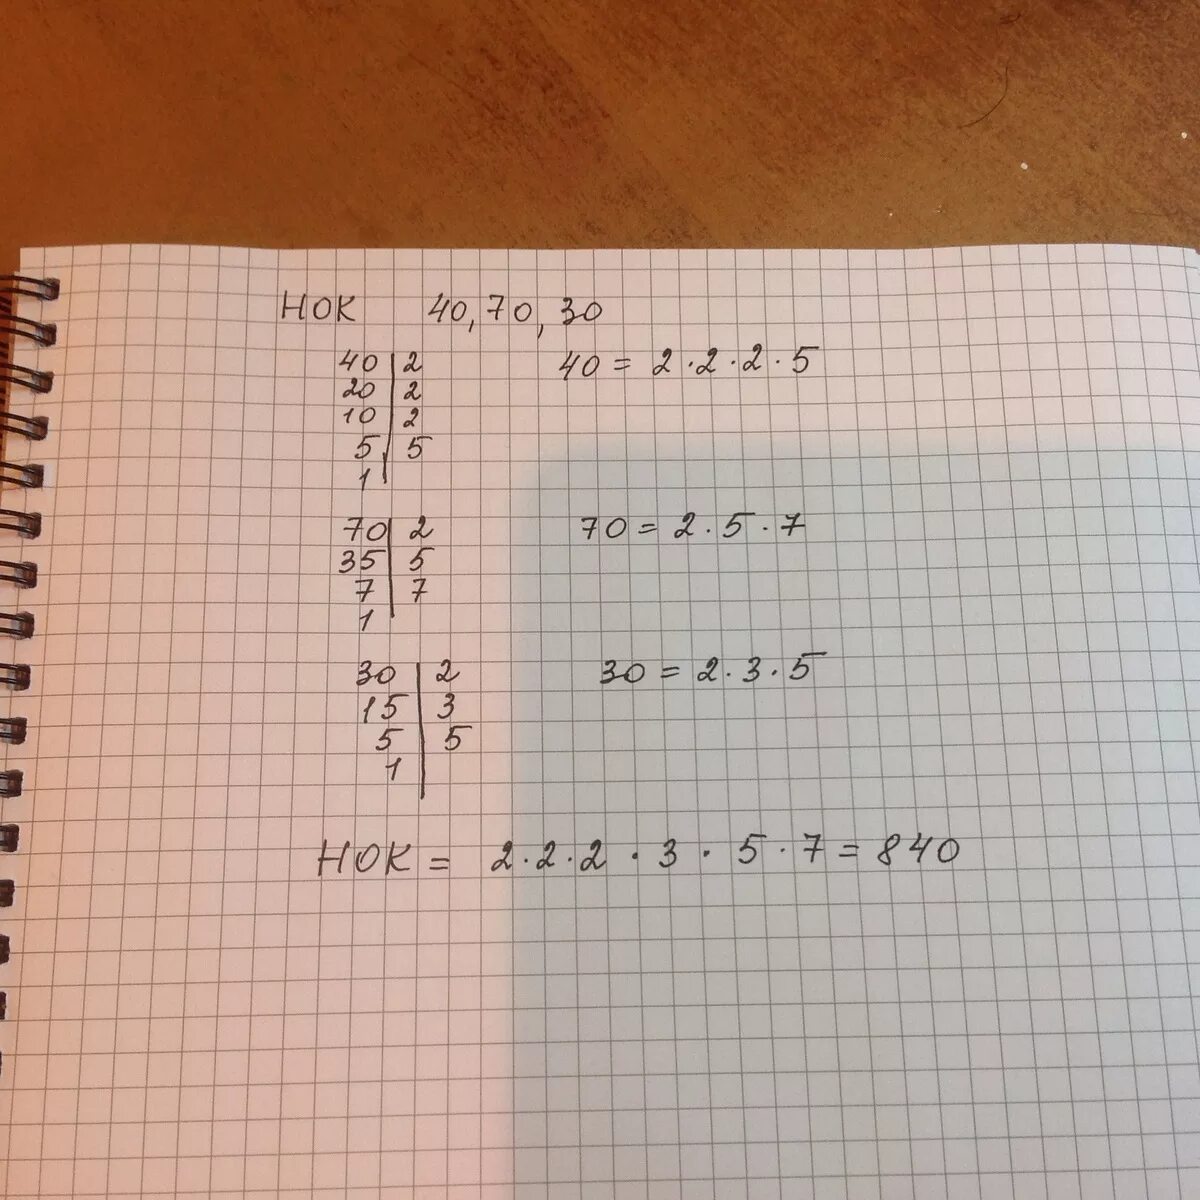 НОК 40, 70, 30
40 | 2 40 = 2 · 2 · 2 · 5
20 | 2
10 | 2
5 | 5
1
70 | 2 70 = 2 · 5 · 7
35 | 5
7 | 7
1
30 | 2 30 = 2 · 3 · 5
15 | 3
5 | 5
1
НОК = 2 · 2 · 2 · 3 · 5 · 7 = 840